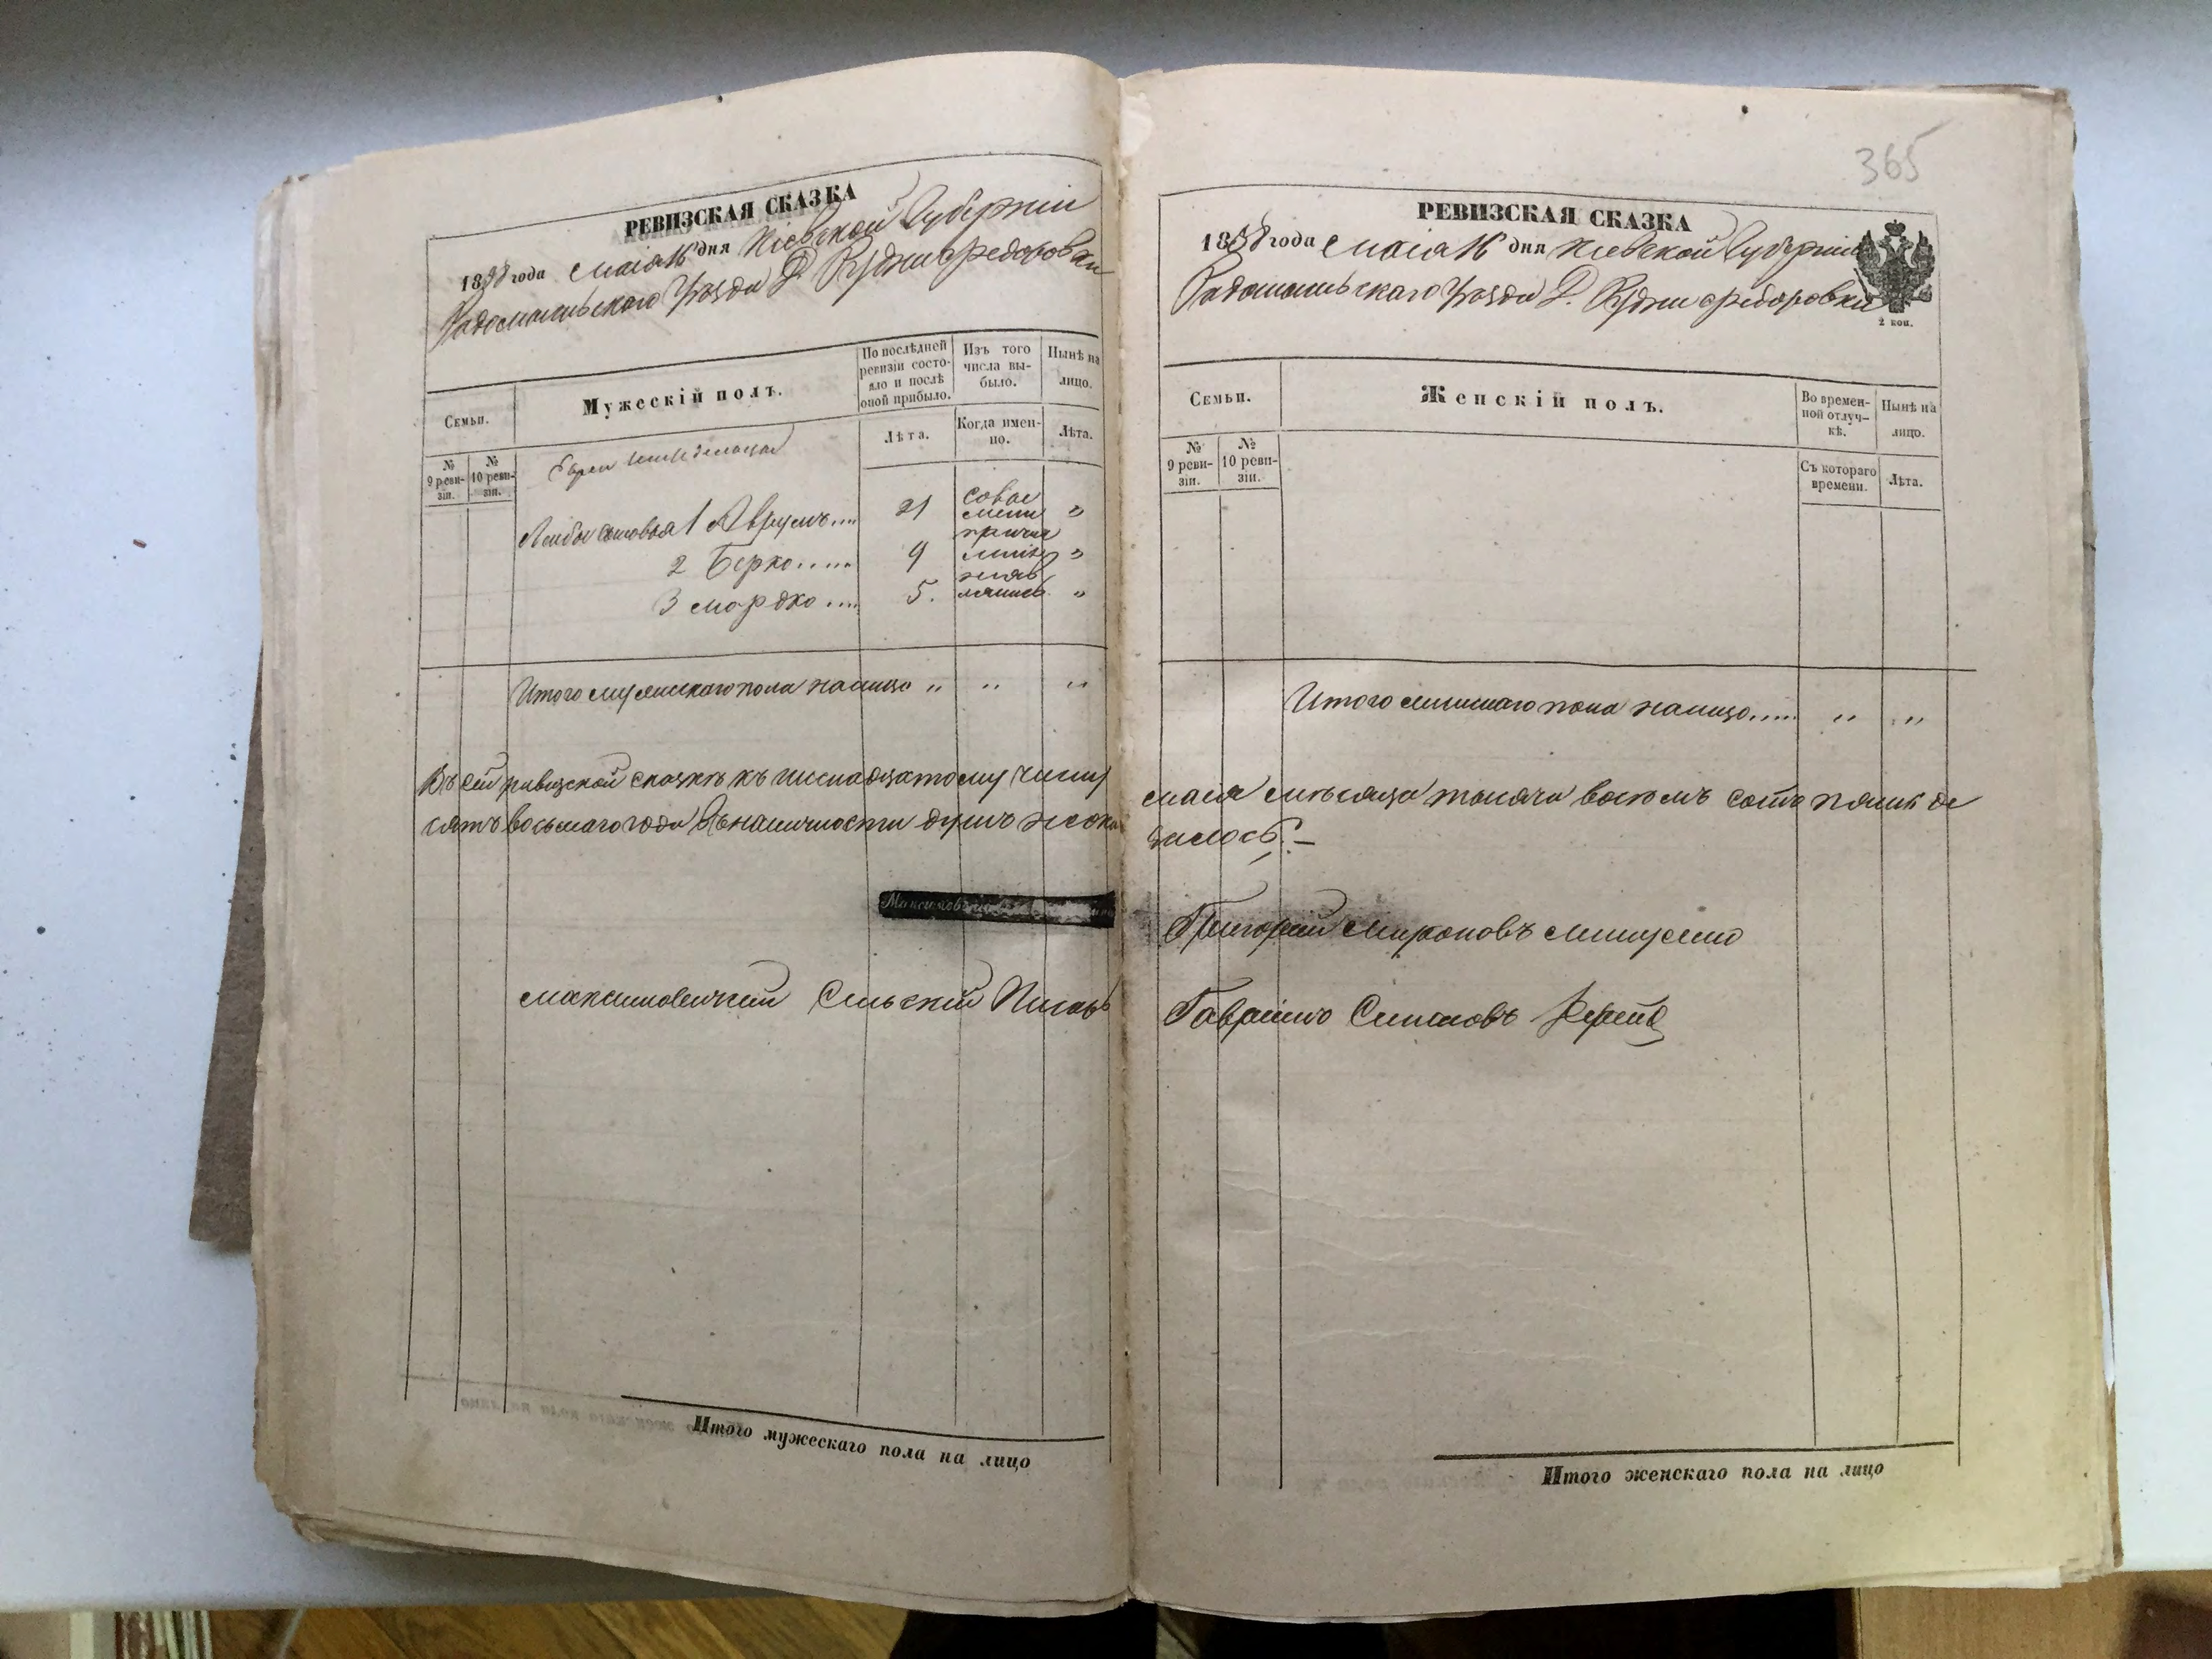 РЕВИЗСКАЯ СКАЗКА
1858 года Маія 16 дня Кіевской Губерніи
Радомысльскаго Уѣзда Д. Рудни Федоровки
Семьи.
Мужескій полъ.
По послѣдней ревизіи состояло и послѣ оной прибыло.
Изъ того числа выбыло.
Нынѣ на лицо.
Лѣта.
Когда именно.
Лѣта.
№ 9 ревизіи.
№ 10 ревизіи.
Евреи
Лейбы сыновья 1 Аврумъ.... 21 "
2 Берко..... 9 "
3 Мордко.... 5. "
Итого мужескаго пола налицо " " "
Въ сей ревизской сказкѣ къ шеснадцатому числу
сятъ восьмаго года въ наличности душъ неока
Максимовицкій Сельскій Писарь
Итого мужескаго пола на лицо
365
РЕВИЗСКАЯ СКАЗКА
1858 года Маія 16 дня Кіевской Губерніи
Радомысльскаго Уѣзда Д. Рудни Федоровки
2 коп.
Семьи.
Женскій полъ.
Во временной отлучкѣ.
Нынѣ на лицо.
№ 9 ревизіи.
№ 10 ревизіи.
Съ котораго времени.
Лѣта.
Итого женскаго пола налицо..... " "
маія мѣсяца тысяча восемъ сотъ пятьде
залось.—
Григорій Мироновъ
Гаврило Симоновъ
Итого женскаго пола на лицо